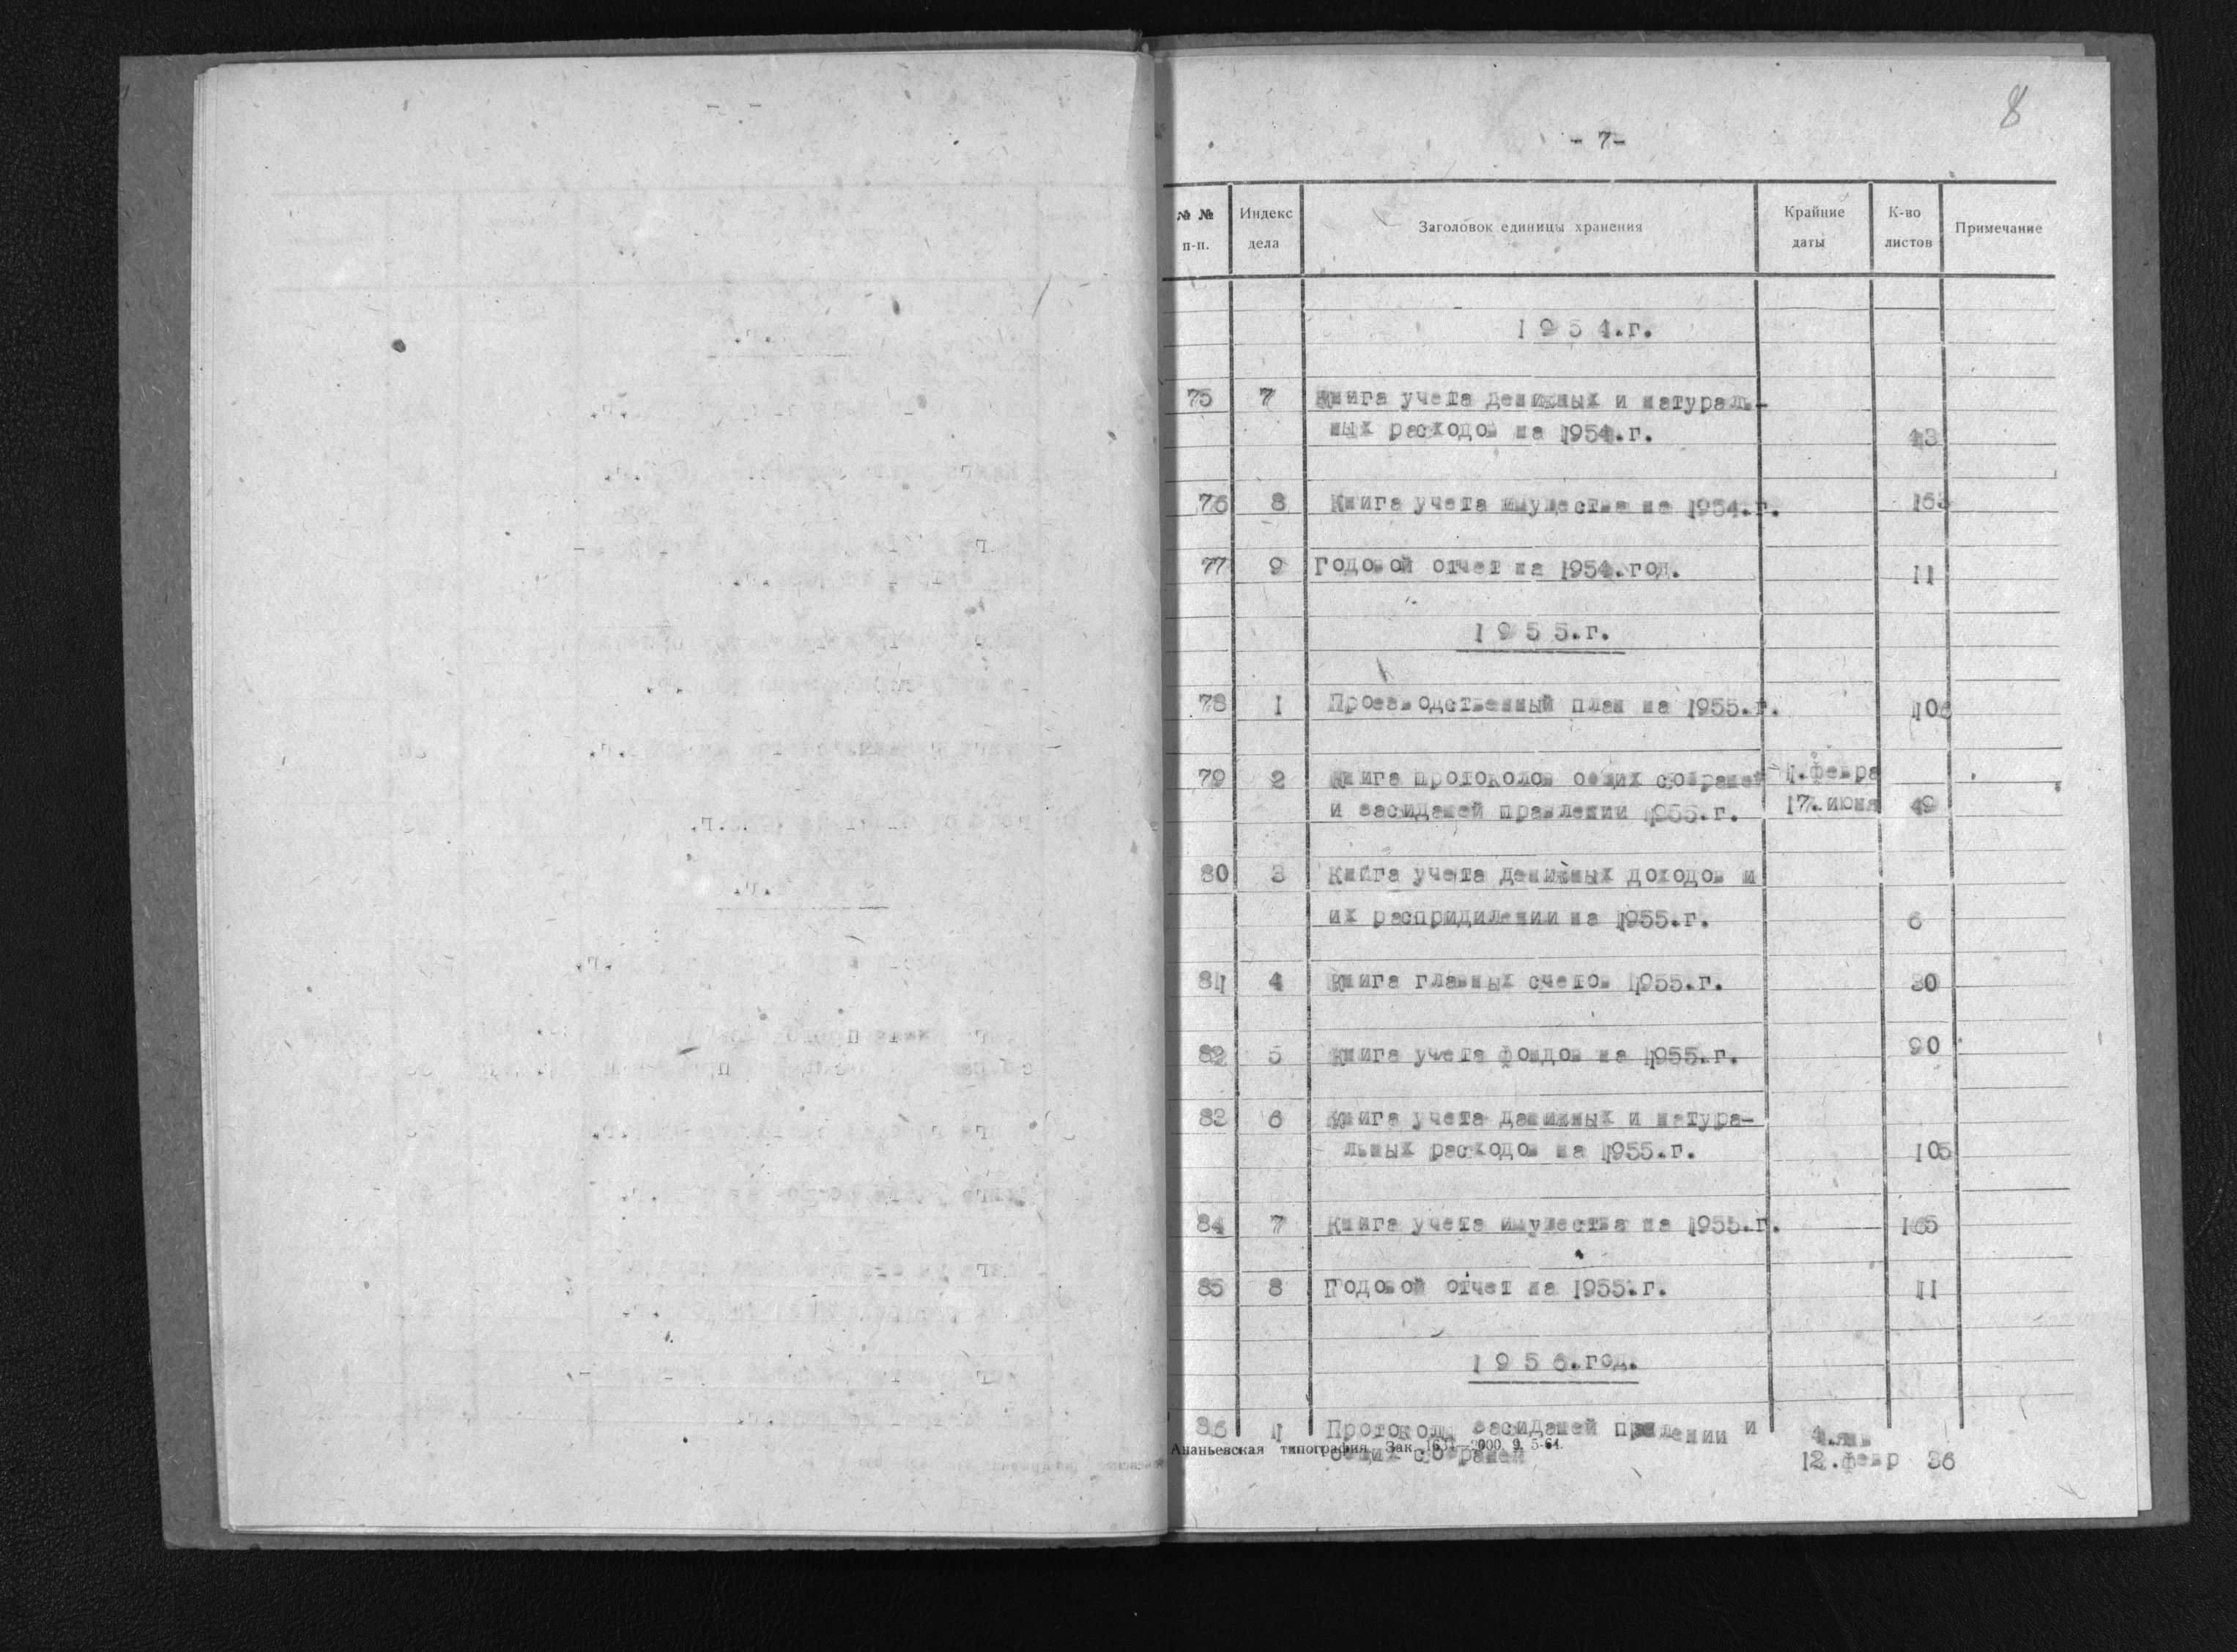 8
- 7-
№ № п-п. Индекс дела Заголовок единицы хранения Крайние даты К-во листов Примечание
1 9 5 4.г.
75 7 Книга учета денижных и натураль-
ных расходов на 1954.г. 43
76 8 Книга учета имущества на 1954.г. 163
77 9 Годовой отчет на 1954.год. 11
1 9 5 5.г.
78 1 Проезводственный план на 1955.г. 106
79 2 Книга протоколов общих собраней 1.февра
и засиданей правлении 1955.г. 17.июня 49
80 3 Книга учета денижных доходов и
их распридилении на 1955.г. 6
81 4 Книга главных счетов 1955.г. 30
82 5 Книга учета фондов на 1955.г. 90
83 6 Книга учета данижных и натура-
льных расходов на 1955.г. 105
84 7 Книга учета имущества на 1955.г. 165
85 8 Годовой отчет на 1955.г. 11
1 9 5 6.год.
86 1 Протоколы засиданей правлении и 4.янв
Ананьевская типография Зак 1631—2000 9. 5-64.
общих собраней 12.февр 36